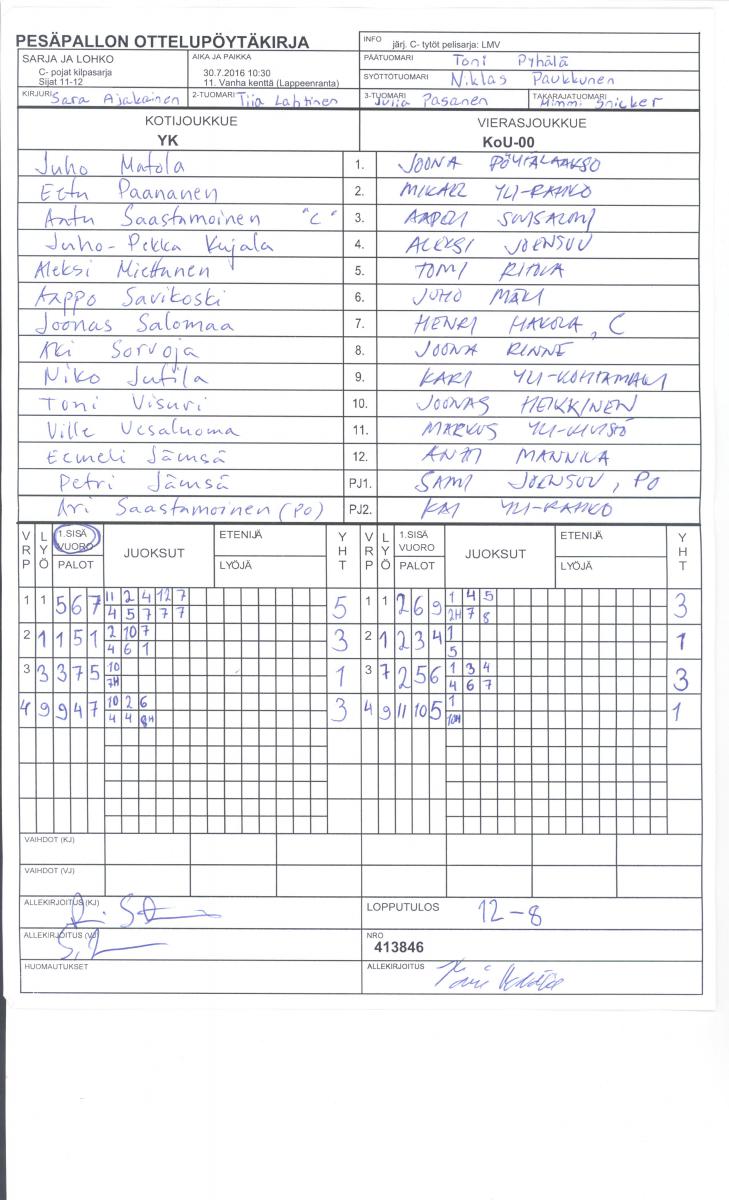 PESÄPALLON OTTELUPÖYTÄKIRJA
INFO järj. C- tytöt pelisarja: LMV
SARJA JA LOHKO
C- pojat kilpasarja
Sijat 11-12
AIKA JA PAIKKA
30.7.2016 10:30
11. Vanha kenttä (Lappeenranta)
PÄÄTUOMARI Toni Pyhälä
SYÖTTÖTUOMARI Niklas Paukkunen
KIRJURI Sara Ajakainen
2-TUOMARI Tiia Lahtinen
3-TUOMARI Julia Pasanen
TAKARAJATUOMARI Mimmi Snicker
KOTIJOUKKUE
YK
VIERASJOUKKUE
KoU-00
Juho Matola 1. JOONA PÖYHTÄLAAKSO
Eetu Paananen 2. MIKAEL YLI-RAHKO
Antu Saastamoinen "C" 3. AAPELI SUSSALMI
Juho-Pekka Kujala 4. ALEKSI JOENSUU
Aleksi Miettunen 5. TOMI RITOLA
Aappo Savikoski 6. JUHO MÄKI
Joonas Salomaa 7. HENRI HAKOLA, C
Aki Sorvoja 8. JOONA RINNE
Niko Jutila 9. KARI YLI-KOHTAMÄKI
Toni Visuri 10. JOONAS HEIKKINEN
Ville Vesaluoma 11. MARKUS
Eemeli Jämsä 12. ANTTI MANNILA
Petri Jämsä PJ1. SAMI JOENSUU, PO
Ari Saastamoinen (PO) PJ2. KAI YLI-RAHKO
VRP LYÖ 1.SISÄ VUORO PALOT JUOKSUT ETENIJÄ LYÖJÄ YHT VRP LYÖ 1.SISÄ VUORO PALOT JUOKSUT ETENIJÄ LYÖJÄ YHT
1 1 5 6 7 11 2 4 12 7 5 1 1 2 6 9 1 4 5 3
4 5 7 7 7 2H 7 8
2 1 1 5 1 2 10 7 3 2 1 2 3 4 1 1
4 6 1 5
3 3 3 7 5 10 1 3 7 2 5 6 1 3 4 3
7H 4 6 7
4 9 9 4 7 10 2 6 3 4 9 11 10 5 1 1
4 4 8H 10H
VAIHDOT (KJ)
VAIHDOT (VJ)
ALLEKIRJOITUS (KJ)
LOPPUTULOS 12-8
ALLEKIRJOITUS (VJ)
NRO
413846
HUOMAUTUKSET
ALLEKIRJOITUS